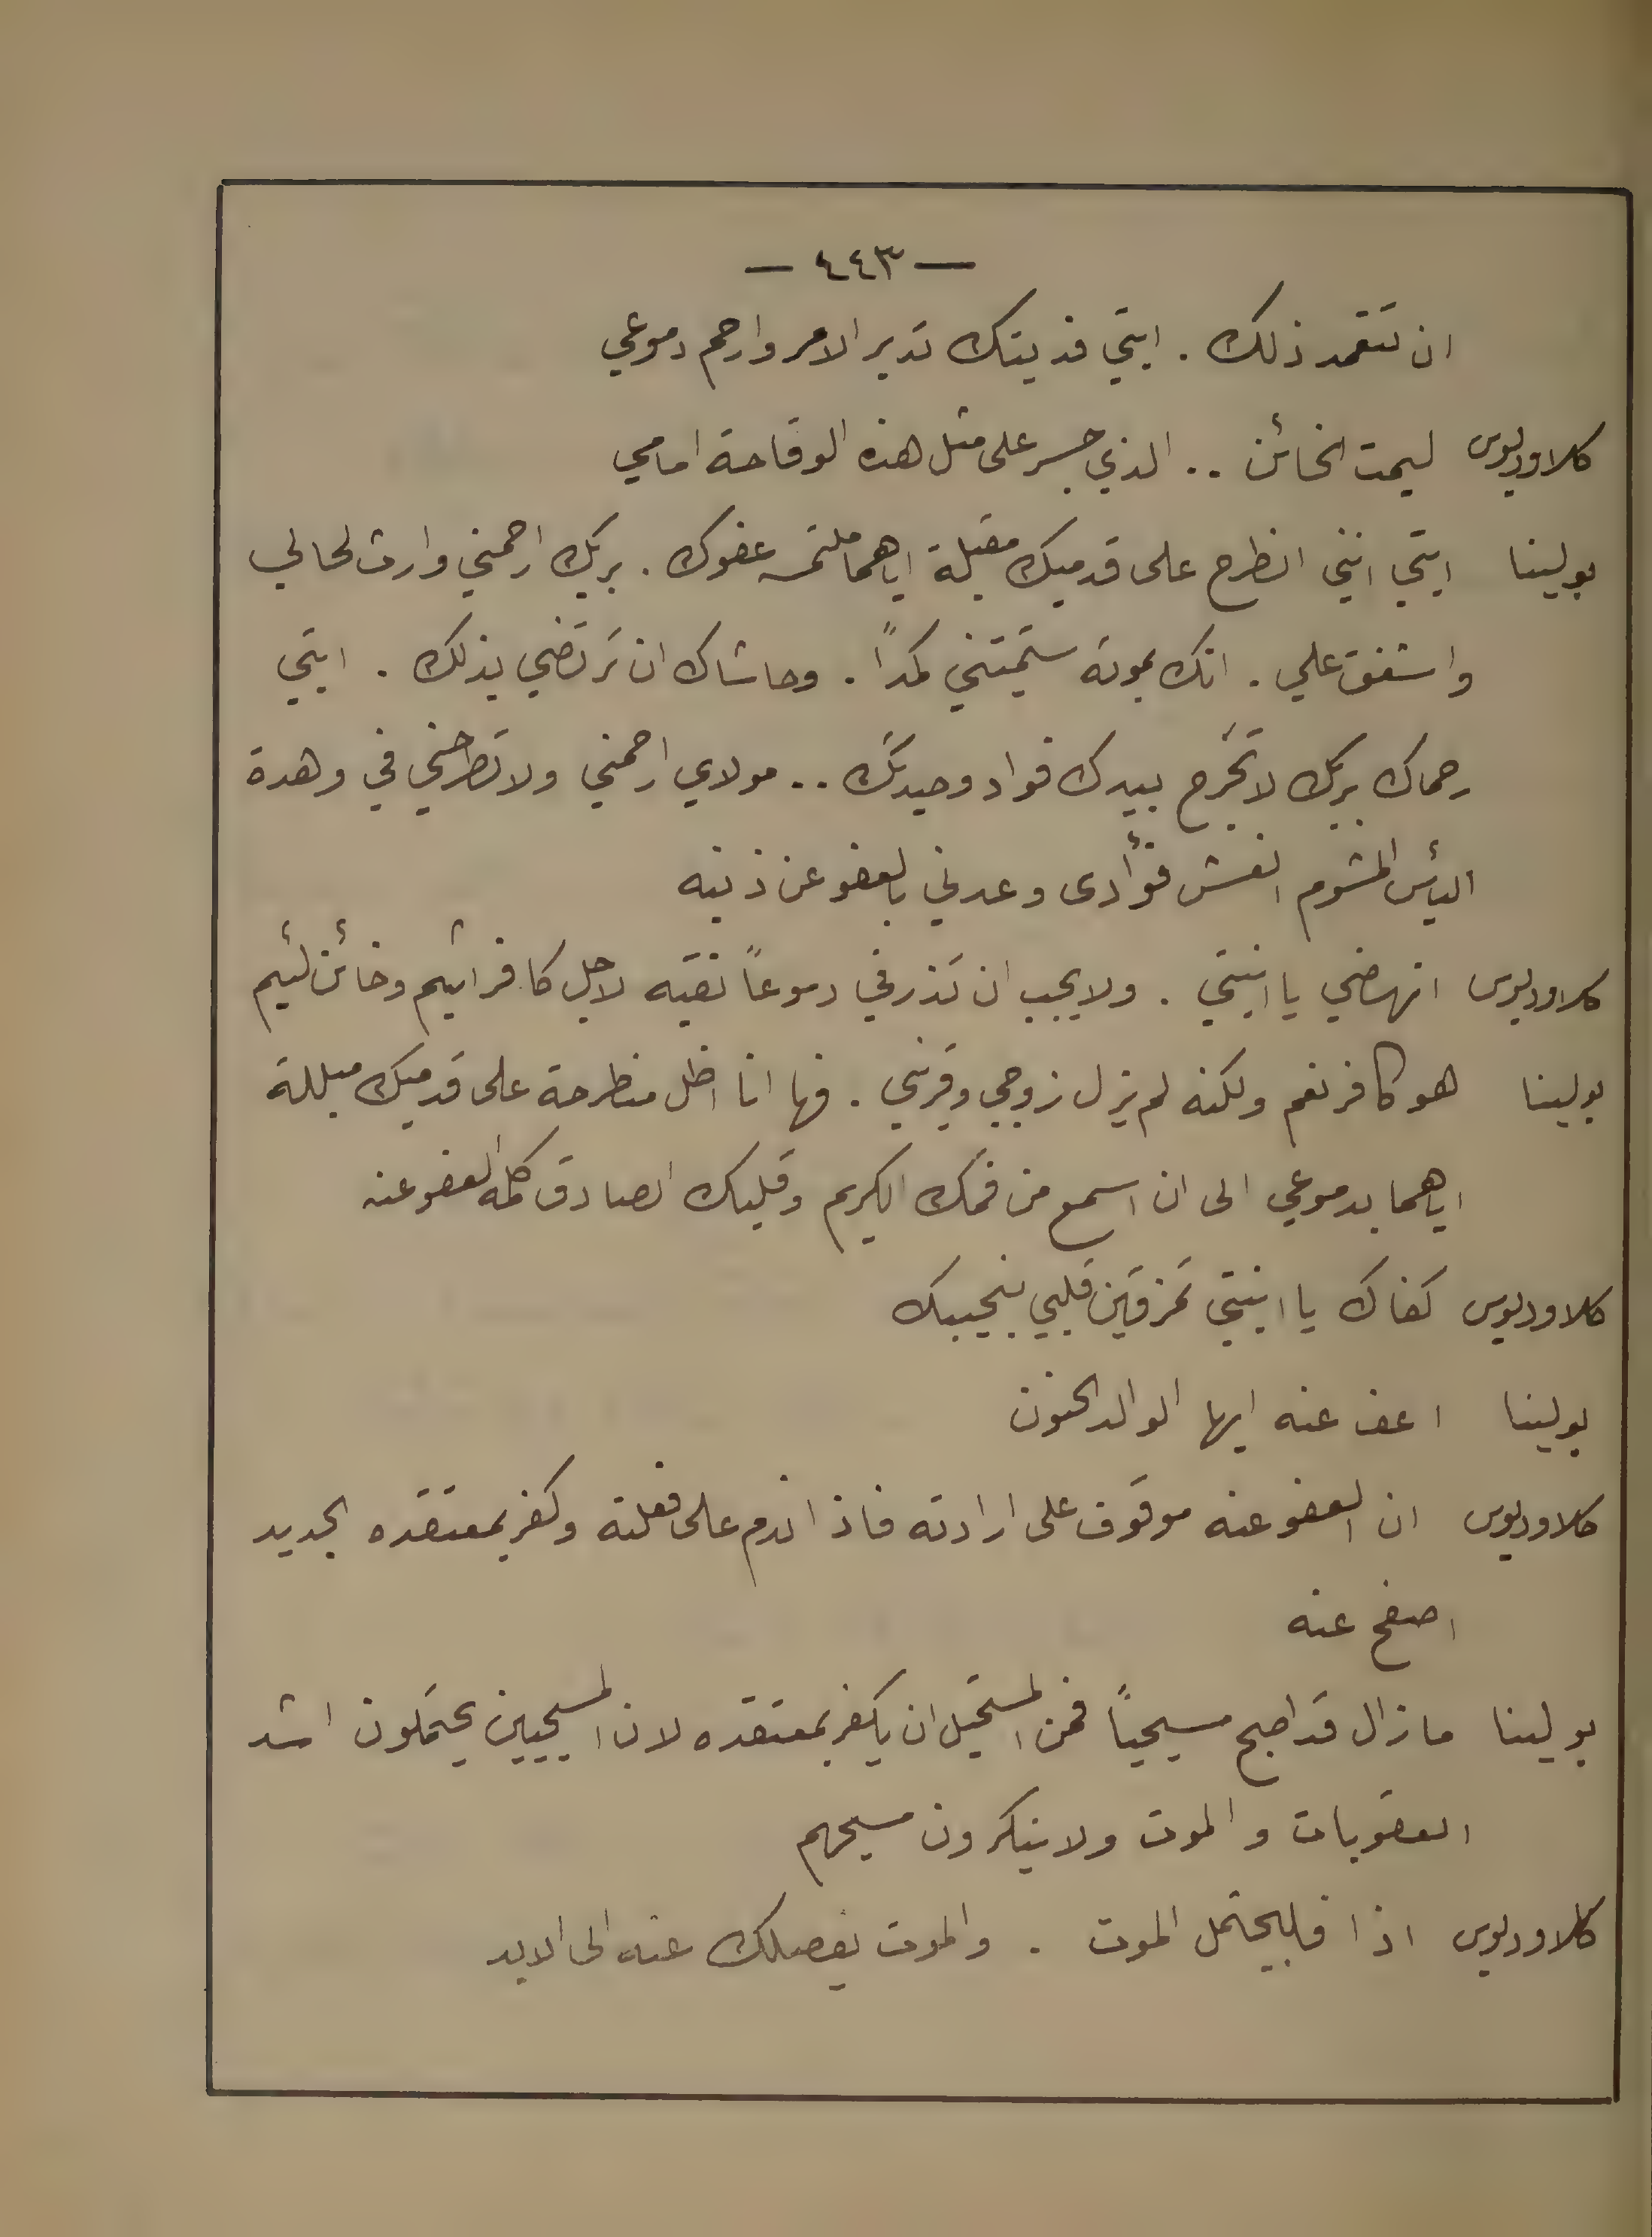 — ٤٤٣ —
ان تتعمد ذلك . ابتي فديتك تدبر الامر وارحم دموعي
كلاوديوس ليمت الخائن .. الذي جسر على مثل هذه الوقاحة امامي
بولينا ابتي انني انطرح على قدميك مقبلة اياهما ملتمسه عفوك . بربك ارحمني وارث لحالي
واشفق علي . انك بموته ستميتني كمداً . وحاشاك ان ترتضي بذلك . ابتي
رحماك بربك لا تجرح بيدك فواد وحيدتك .. مولاي ارحمني ولا تطرحني في وهدة
اليأس المشوم انعش فؤادى وعدني بالعفو عن ذنبه
كلاوديوس انهضي يا ابنتي . ولا يجب ان تذرفي دموعاً نقيه لاجل كافر اثيم وخائن لئيم
بولينا هو كافر نعم ولكنه لم يزل زوجي وقريني . فها انا اظل منطرحة على قدميك مبللة
اياهما بدموعي الى ان اسمع من فمك الكريم وقلبك الصادق كلمة العفو عنه
كلاوديوس كفاك يا ابنتي تمزقين قلبي بنحيبك
بولينا اعف عنه ايها الوالد الحنون
كلاوديوس ان العفو عنه موقوف على ارادته فاذا ندم على فعلته وكفر بمعتقده الجديد
اصفح عنه
بولينا ما زال قد اصبح مسيحياً فمن المستحيل ان يكفر بمعتقده لان المسيحيين يحتملون اشد
العقوبات والموت ولا ينكرون مسيحهم
كلاوديوس اذا فليحتمل الموت . والموت يفصلك عنه الى الابد